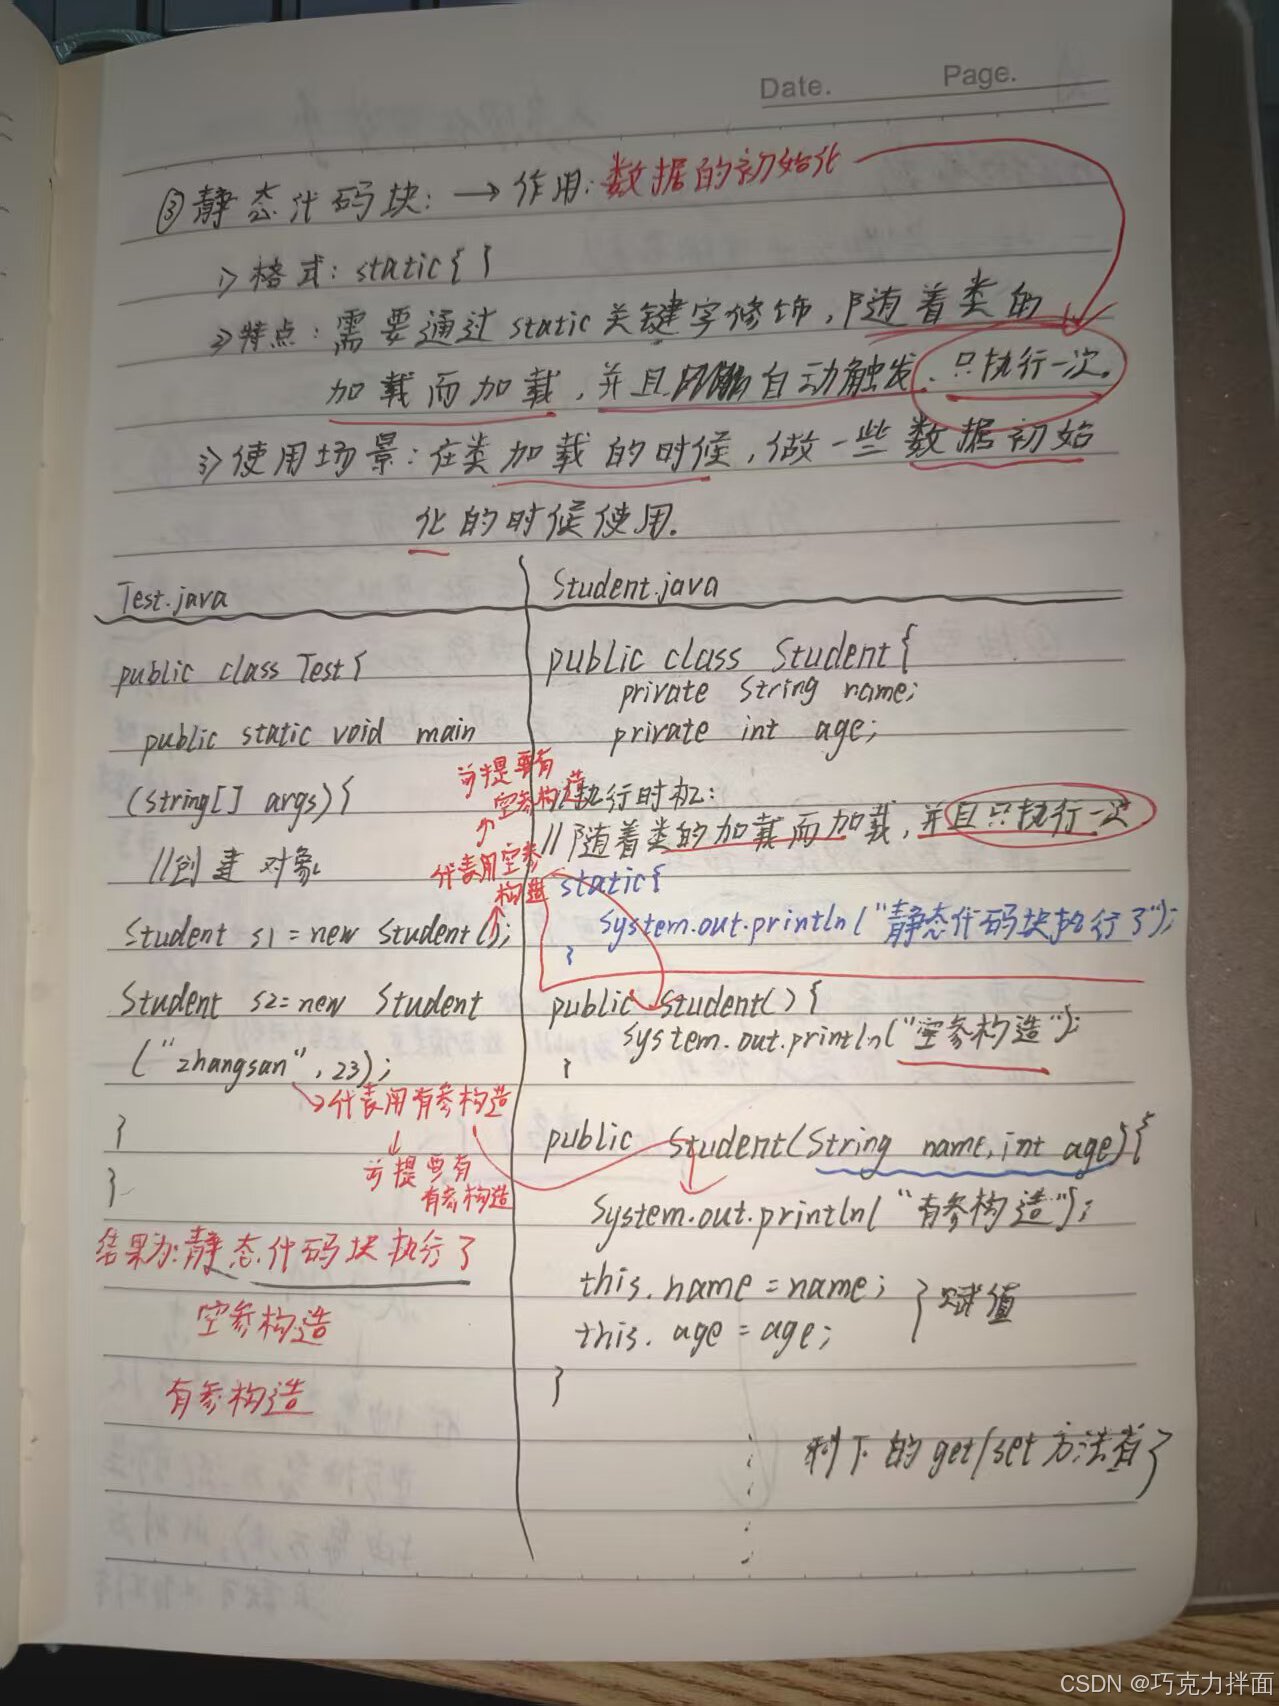 Date. Page.
③静态代码块: → 作用: 数据的初始化
1> 格式: static{ }
2> 特点: 需要通过 static 关键字修饰, 随着类的
加载而加载, 并且自动触发、只执行一次。
3> 使用场景: 在类加载的时候, 做一些数据初始
化的时候使用.
Test.java
public class Test{
public static void main
(String[] args){
//创建对象
Student s1 = new Student();
代表用空参
构造
前提要有
空参构造
Student s2=new Student
("zhangsan", 23);
→代表用有参构造
↓
前提要有
有参构造
}
}
结果为: 静态代码块执行了
空参构造
有参构造
Student.java
public class Student{
private String name;
private int age;
//执行时机:
//随着类的加载而加载, 并且只执行一次
static{
System.out.println("静态代码块执行了");
}
public Student(){
System.out.println("空参构造");
}
public Student(String name, int age){
System.out.println("有参构造");
this.name = name;
this.age = age;
赋值
}
剩下的get/set方法省了
CSDN @巧克力拌面